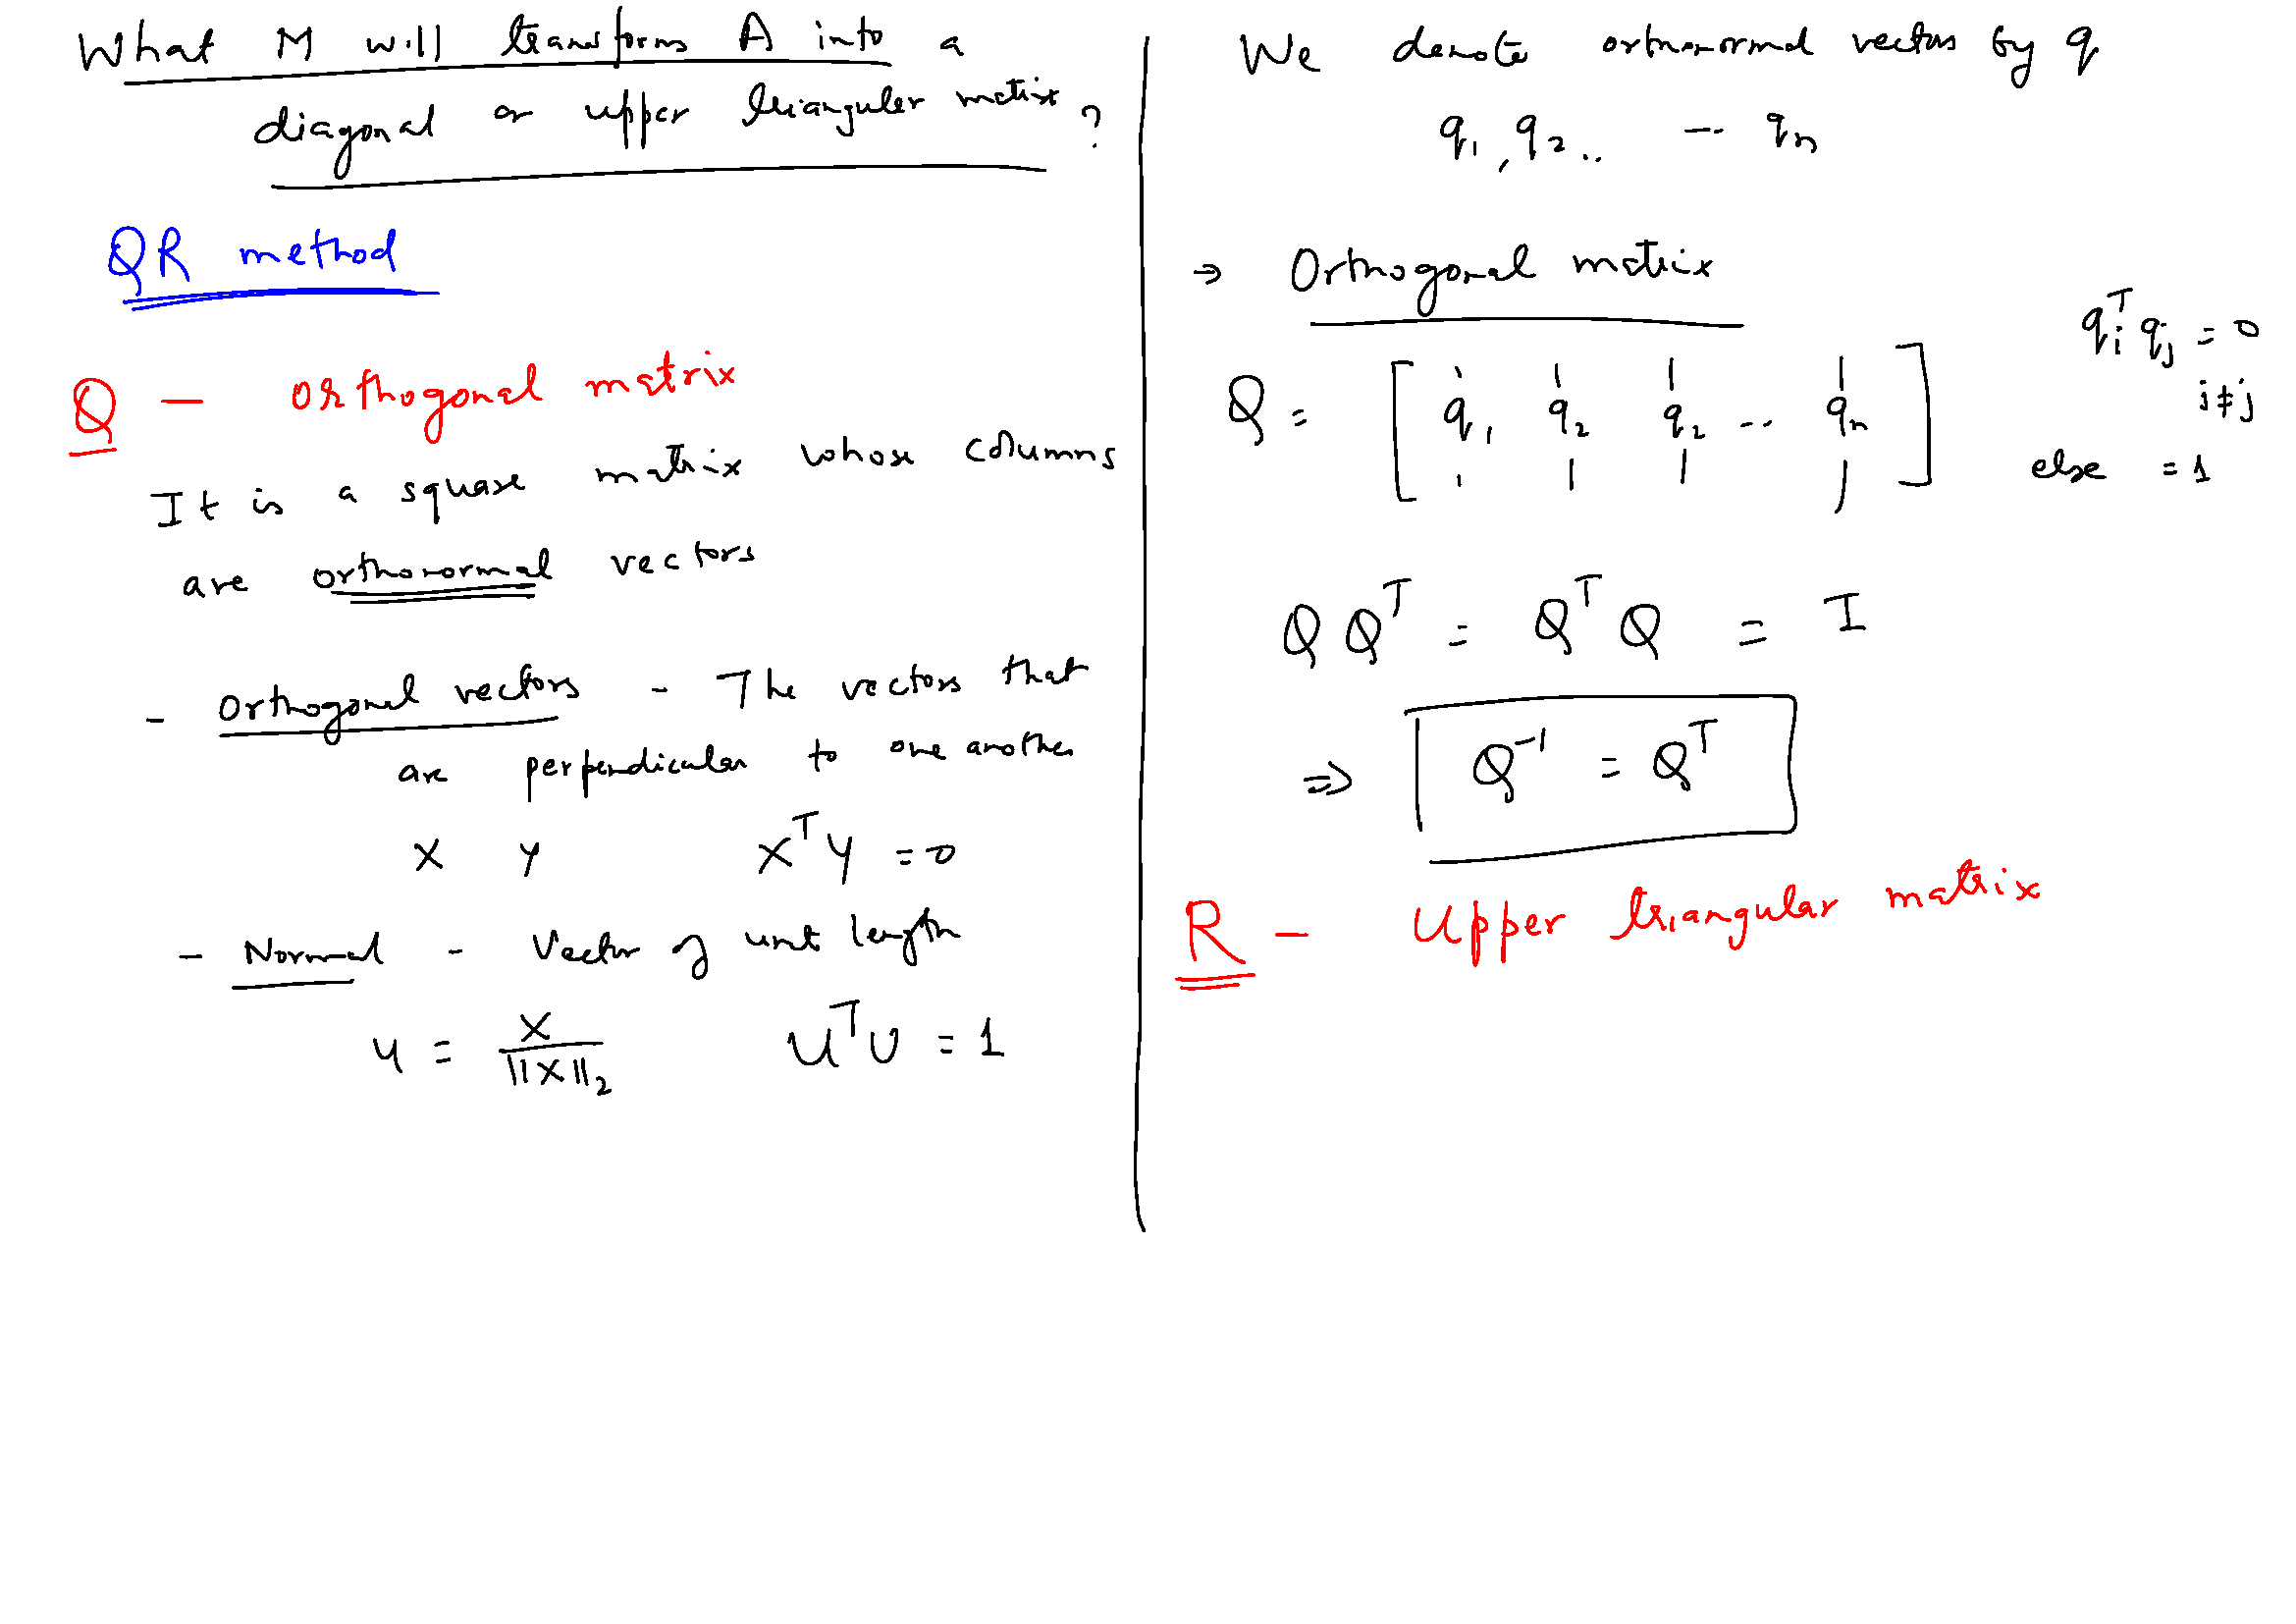 What M will transforms A into a
diagonal or upper triangular matrix ?
QR method
Q - Orthogonal matrix
It is a square matrix whose columns
are orthonormal vectors
- Orthogonal vectors - The vectors that
are perpendicular to one another
X Y X^T Y = 0
- Normal - Vector of unit length
u = X / ||X||_2 U^T U = 1
We denote orthonormal vectors by q
q_1, q_2 .. -- q_n
→ Orthogonal matrix
Q = [ q_1 q_2 q_2 ... q_n ]
q_i^T q_j = 0
i ≠ j
else = 1
Q Q^T = Q^T Q = I
⇒ Q^-1 = Q^T
R - Upper triangular matrix